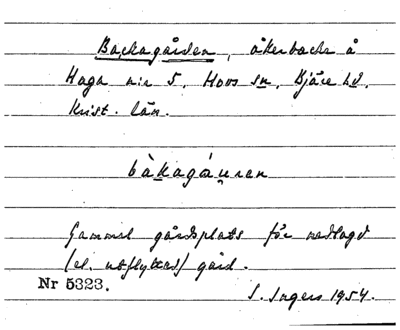 Backagården, åkerbacke å
Haga nr 5, Hovs sn, Bjäre hd.
Krist. län.
bàkagá̱u̱ren
Gammal gårdsplats för nedlagd
(el. utflyttad) gård.
Nr 5323.
S. Ingers 1954.